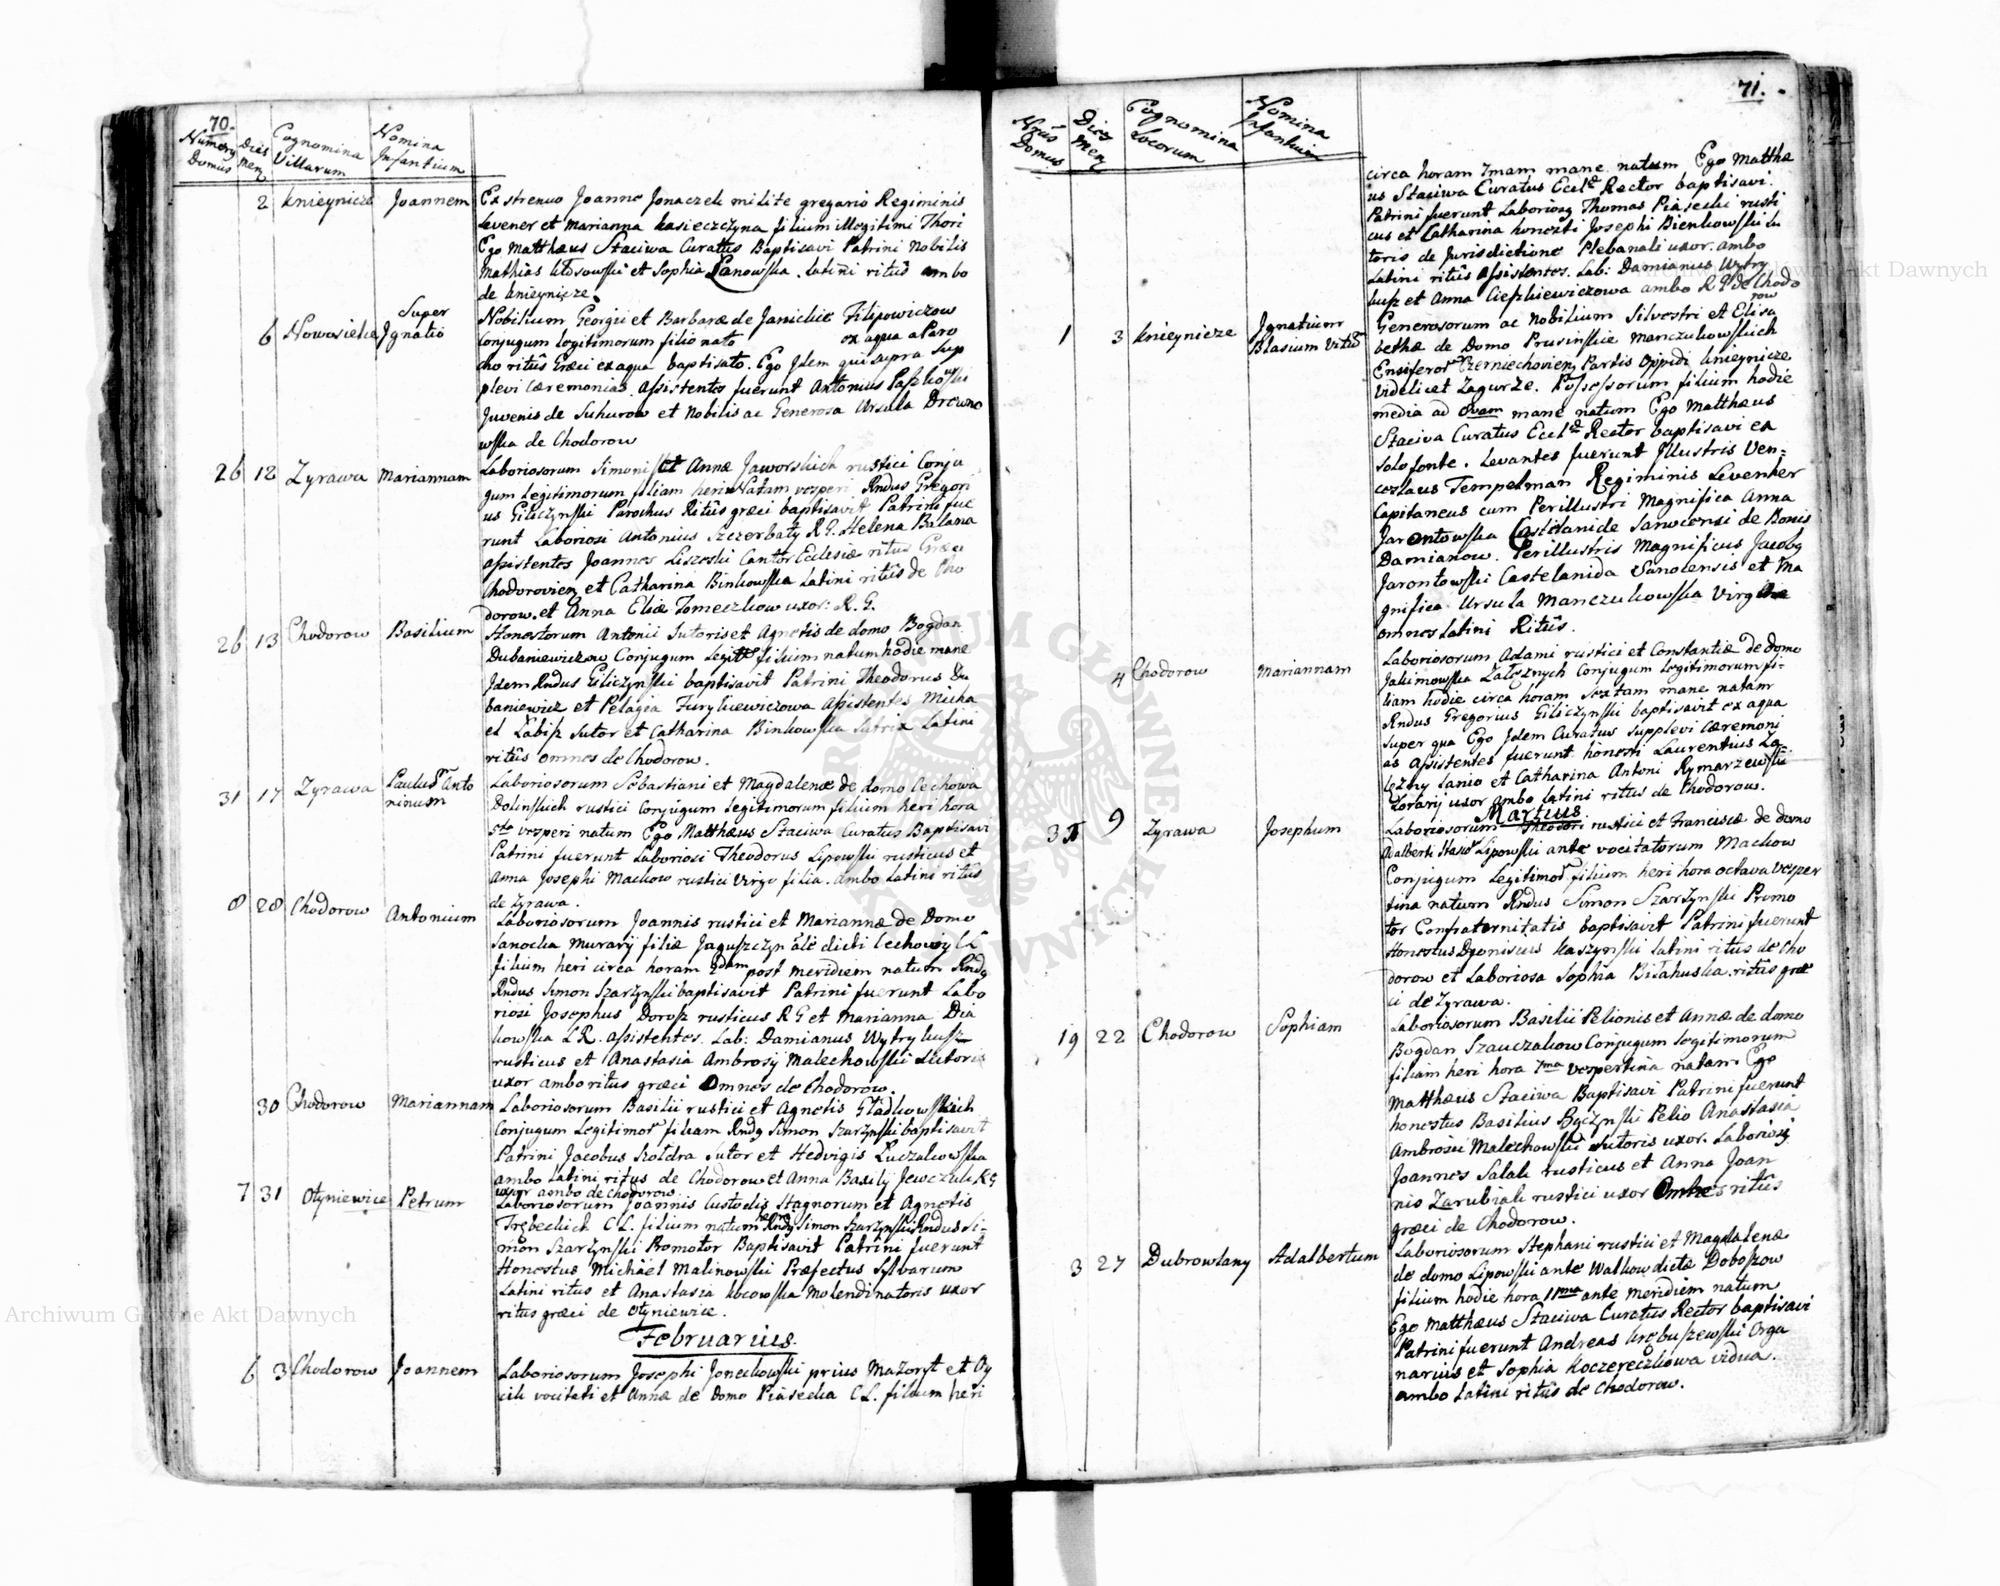 70.
Numery Domûs
Dies Men
Cognomina Villarum
Nomina Infantium
2 Knieynicze Joannem
Ex strenuo Joanne Jonaczek milite gregario Regiminis
Levener et Marianna Kasieczczyna filium illegitimi Thori
Ego Matthæus Staciwa Curattus Baptisavi Patrini Nobilis
Mathias Kłosowski et Sophia Lanowska. Latini ritûs ambo
de Knieynicze.
6 Nowosielce Super Ignatio
Nobilium Georgii et Barbaræ de Janickie Filipowiczow
Conjugum legitimorum filio nato ex aqua a Paro
cho ritûs Græci ex aqua baptisato. Ego Idem qui supra Sup
plevi Cæremonias. Assistentes fuerunt Antonius Paszkowski
Juvenis de Suhurow et Nobilis ac Generosa Ursula Drewno
wska de Chodorow
26 12 Zyrawa Mariannam
Laboriosorum Simonis et Annæ Jaworskich rustici Conju
gum legitimorum filiam heri Natam vesperi Rndus Gregori
us Giliczynski Parochus Ritûs græci baptisavit Patrini fue
runt Laboriosi Antonius Szczerbaty R.G. Helena Balana
assistentes Joannes Liszeski Cantor Ecclesiæ ritus Græci
Chodorovien et Catharina Binkowska Latini ritûs de Cho
dorow. et Anna Eliæ Tomeczkow uxor: R. G.
26 13 Chodorow Basilium
Honestorum Antonii Sutoris et Agnetis de domo Bogdan
Dubaniewiczow Conjugum legitt filium natum hodie mane
Idem Rndus Giliczynski baptisavit Patrini Theodorus Du
baniewicz et Pelagia Furykiewiczowa Assistentes Micha
el Labisz Sutor et Catharina Binkowska Sutrix Latini
ritûs omnes de Chodorow.
31 17 Zyrawa Paulum Anto
ninum
Laboriosorum Sebastiani et Magdalenæ de domo Cechowa
Dolinskich rustici Conjugum legitimorum filium heri hora
5ta vesperi natum Ego Matthæus Staciwa Curatus Baptisavi
Patrini fuerunt Laboriosi Theodorus Lipowski rusticus et
Anna Josephi Mackow rustici Virgo filia. ambo Latini ritûs
de Zyrawa.
8 28 Chodorow Antonium
Laboriosorum Joannis rustici et Mariannæ de Domo
Sanocka Murarij filiæ Jaguszczyn
filium heri circa horam 2dam post meridiem natum Rndg
Rndus Simon Szarzynski baptisavit Patrini fuerunt Labo
riosi Josephus Dorosz rusticus R G et Marianna Dia
kowska L R. assistentes. Lab: Damianus Wytrykusz
rusticus et Anastasia Ambrosij Malechowski Sutoris
uxor ambo ritus græci Omnes de Chodorow.
30 Chodorow Mariannam
Laboriosorum Basilii rustici et Agnetis Gładkowskich
Conjugum legitimor filiam Rndg Simon Szarzynski baptisavit
Patrini Jacobus Szoldra Sutor et Hedvigis Łuczakowska
ambo Latini ritus de Chodorow et Anna Basilij Jewczuk RG
uxor ambo de Chodorow
7 31 Otyniewice Petrum
Laboriosorum Joannis Custodis Stagnorum et Agnetis
Trębeckich C L. filium natum heri Rndg Simon Szarzynski Rndus Si-
mon Szarzynski Promotor Baptisavit Patrini fuerunt
Honestus Michael Malinowski Præfectus Sylvarum
Latini ritus et Anastasia Kocowska Molendinatoris uxor
ritus græci de Otyniewice.
Februarius.
6 3 Chodorow Joannem
Laboriosorum Josephi Joneckowski prius Mazoryt et Oy
cik vocitati et Annæ de Domo Piasecka C L. filium heri
71.
Nrûs Domus
Dies Men
Cognomina Locorum
Nomina Infantium
circa horam 7mam mane natum Ego Matthæ
us Staciwa Curatus Eccl Rector baptisavi.
Patrini fuerunt Laboriosg Thomas Piasecki rusti
cus et Catharina honesti Josephi Bienkowski Su
toris de Jurisdictione Plebanali uxor. ambo
Latini ritûs assistentes. Lab: Damianus Wytry
kusz et Anna Cieszkiewiczowa ambo R G de Chodo
row
1 3 Knieynicze Ignatium
Blasium Vitum
Generosorum ac Nobilium Silvestri et Elisa
bethæ de Domo Prusinskie Manczukowskich
Ensiferor Czerniechovien Partis Oppidi Knieynicze
videlicet Zagorze. Possessorum filium hodie
media ad 8vam mane natum Ego Matthæus
Staciva Curatus Eccl Rector baptisavi ex
solo fonte. Levantes fuerunt Illustris Ven=
ceslaus Tempelman Regiminis Levenher
Capitaneus cum Perillustri Magnifica Anna
Jarontowska Castelanide Sanocensi de Bonis
Damianow. Perillustris Magnificus Jacobg
Jarontowski Castelanida Sanocensis et Ma
gnifica Ursula Manczukowska Virgine
omnes Latini Ritûs.
4 Chodorow Mariannam
Laboriosorum Adami rustici et Constantiæ de domo
Jakimowska Załęznych Conjugum legitimorum fi-
liam hodie circa horam sextam mane natam
Rndus Gregorius Giliczynski baptisavit ex aqua
super qua Ego Idem Curatus Supplevi Cæremoni
as assistentes fuerunt honesti Laurentius Za-
lęzny Lanio et Catharina Antoni Rymarzewski
Lorarij uxor ambo Latini ritus de Chodorow.
Martius
3 9 Zyrawa Josephum
Laboriosorum Theodori rustici et Franciscæ de domo
Adalberti Lipowski ante vocitatorum Mackow
Conjugum legitimor filium heri hora octava vesper
tina natum Rndus Simon Szarzynski Promo
tor Confraternitatis baptisavit Patrini fuerunt
Honestus Dyonisius Kaszynski Latini ritus de Cho
dorow et Laboriosa Sophia Bilahuska. ritûs græ
ci de Zyrawa.
19 22 Chodorow Sophiam
Laboriosorum Basilii Pelionis et Annæ de domo
Bogdan Szauczakow Conjugum legitimorum
filiam heri hora 7ma vespertina natam Ego
Matthæus Staciwa Baptisavi Patrini fuerunt
honestus Basilius Byczynski Pelio Anastasia
Ambrosii Malechowski Sutoris uxor. Laboriosg
Joannes Salak rusticus et Anna Joan
nis Zarubiak rustici uxor Omnes ritûs
græci de Chodorow.
3 27 Dubrowlany Adalbertum
Laboriosorum Stephani rustici et Magdalenæ
de domo Lipowski ante Walkow dictæ Doboszow
filium hodie hora 11ma ante meridiem natum
Ego Matthæus Staciwa Curatus Rector baptisavi
Patrini fuerunt Andreas Krebuszewski Orga
narius et Sophia Koczereczkowa vidua.
ambo Latini ritûs de Chodorow.
Archiwum Główne Akt Dawnych
Archiwum Główne Akt Dawnych
ARCHIWUM GŁÓWNE AKT DAWNYCH